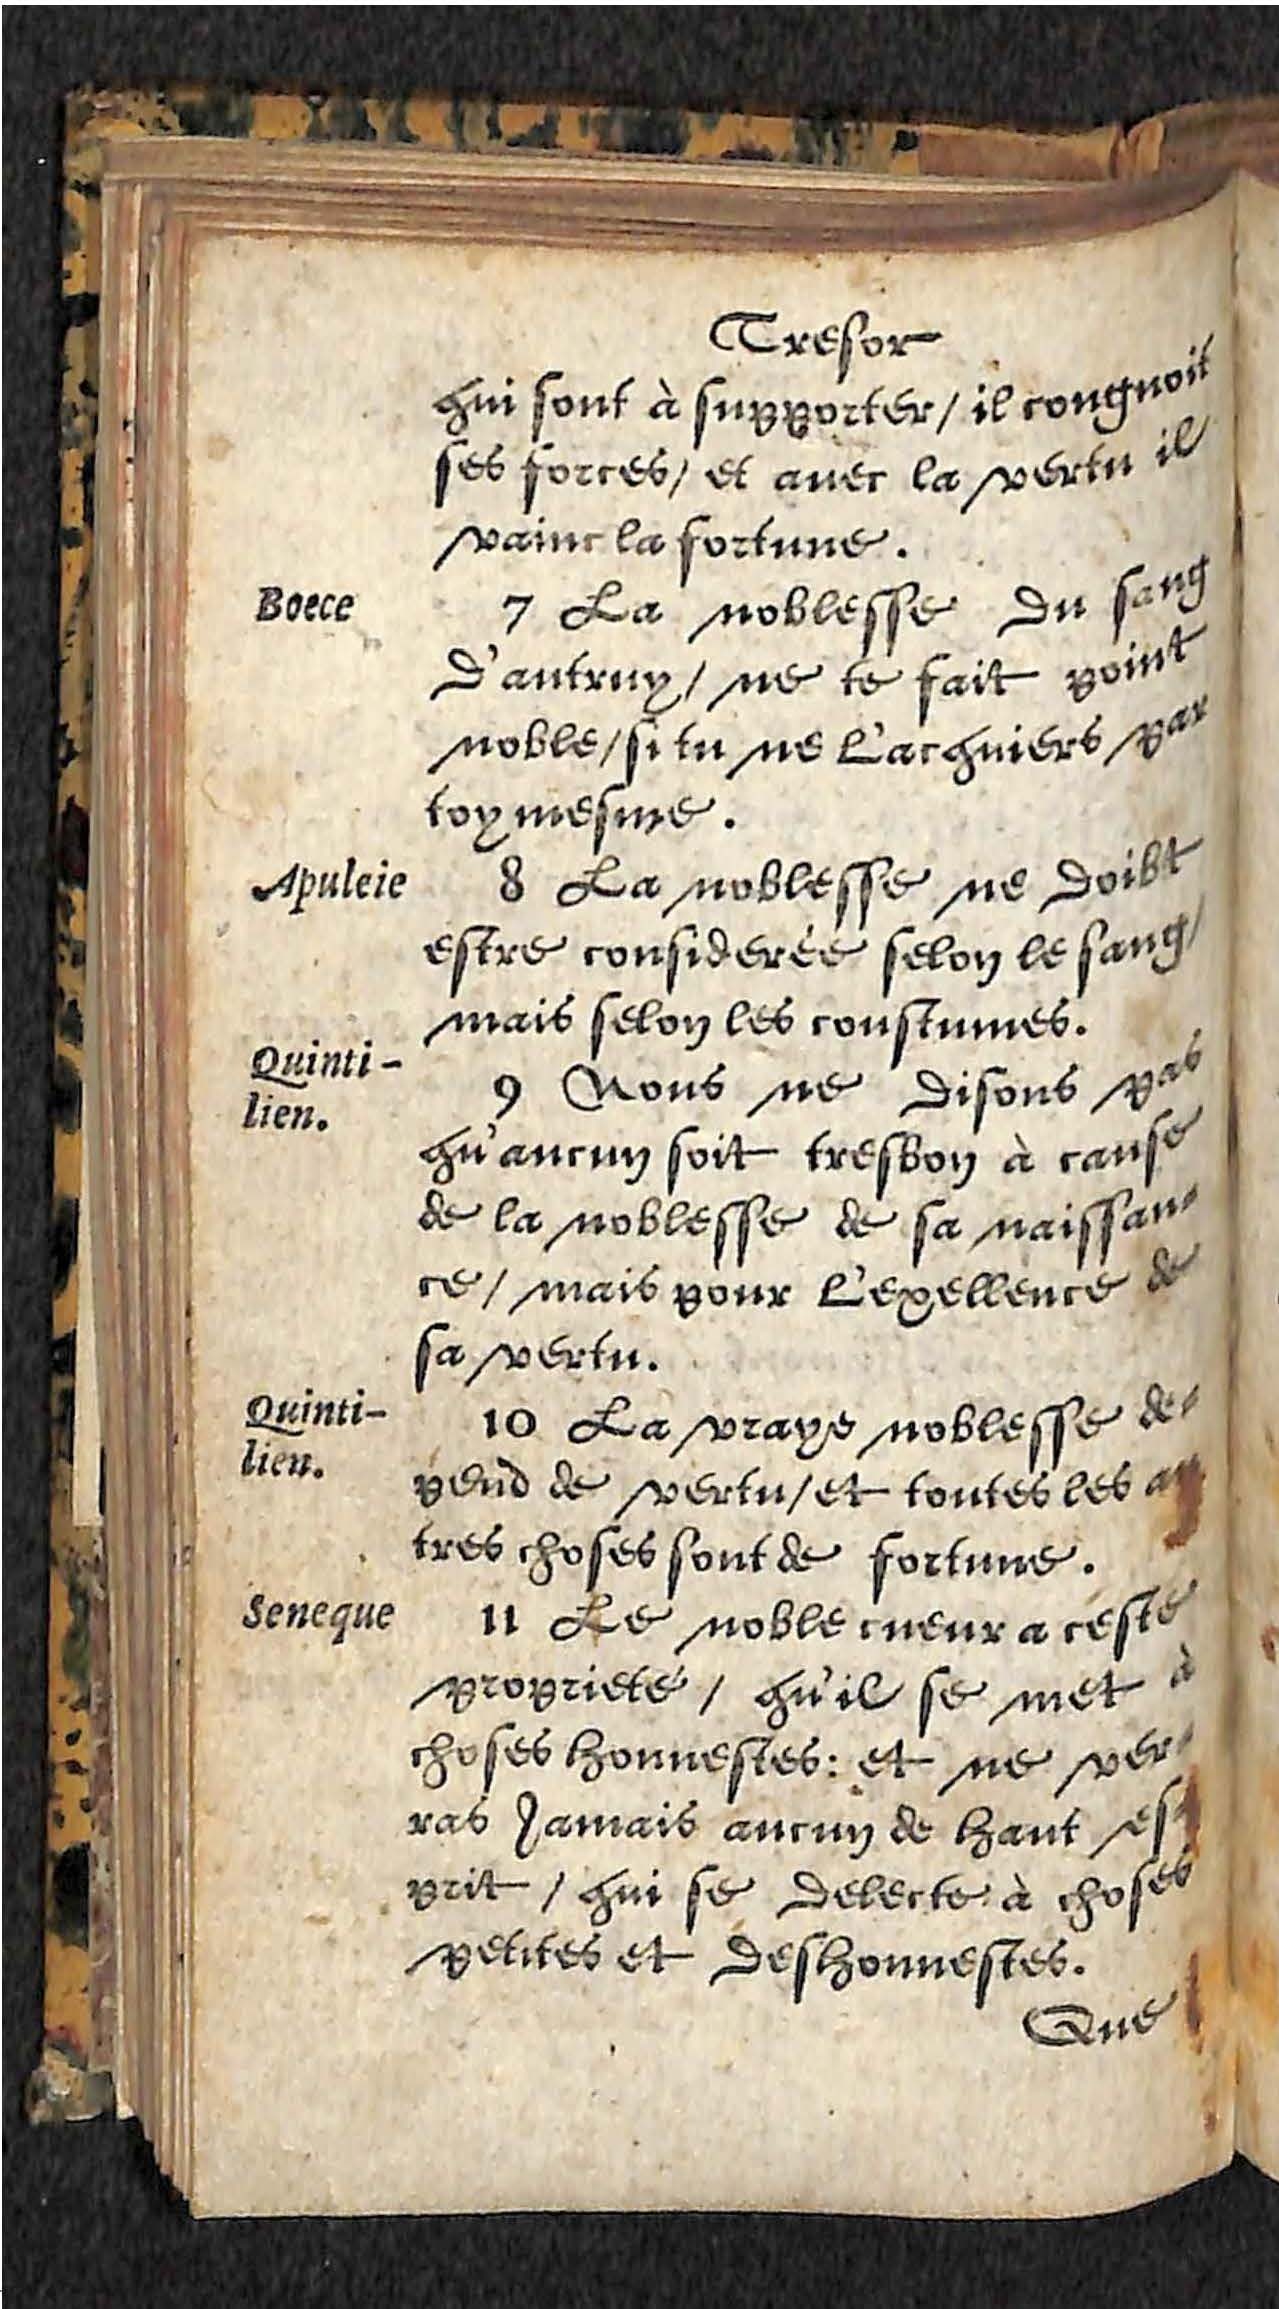 Tresor
qui sont à supporter/ il congnoit
ses forces/ et auec la vertu il
vainc la fortune.
Boece
7 La noblesse du sang
d'autruy/ ne te fait point
noble/ si tu ne l'acquiers par
toymesme.
Apuleie
8 La noblesse ne doibt
estre considerée selon le sang/
mais selon les coustumes.
Quinti-
lien.
9 Nous ne disons pas
qu'aucun soit tresbon à cause
de la noblesse de sa naissan-
ce/ mais pour l'exellence de
sa vertu.
Quinti-
lien.
10 La vraye noblesse de-
pend de vertu/ et toutes les au
tres choses sont de fortune.
Seneque
11 Le noble cueur a ceste
proprieté/ qu'il se met à
choses honnestes: et ne ver-
ras Jamais aucun de haut es-
prit/ qui se delecte à choses
petites et deshonnestes.
Que